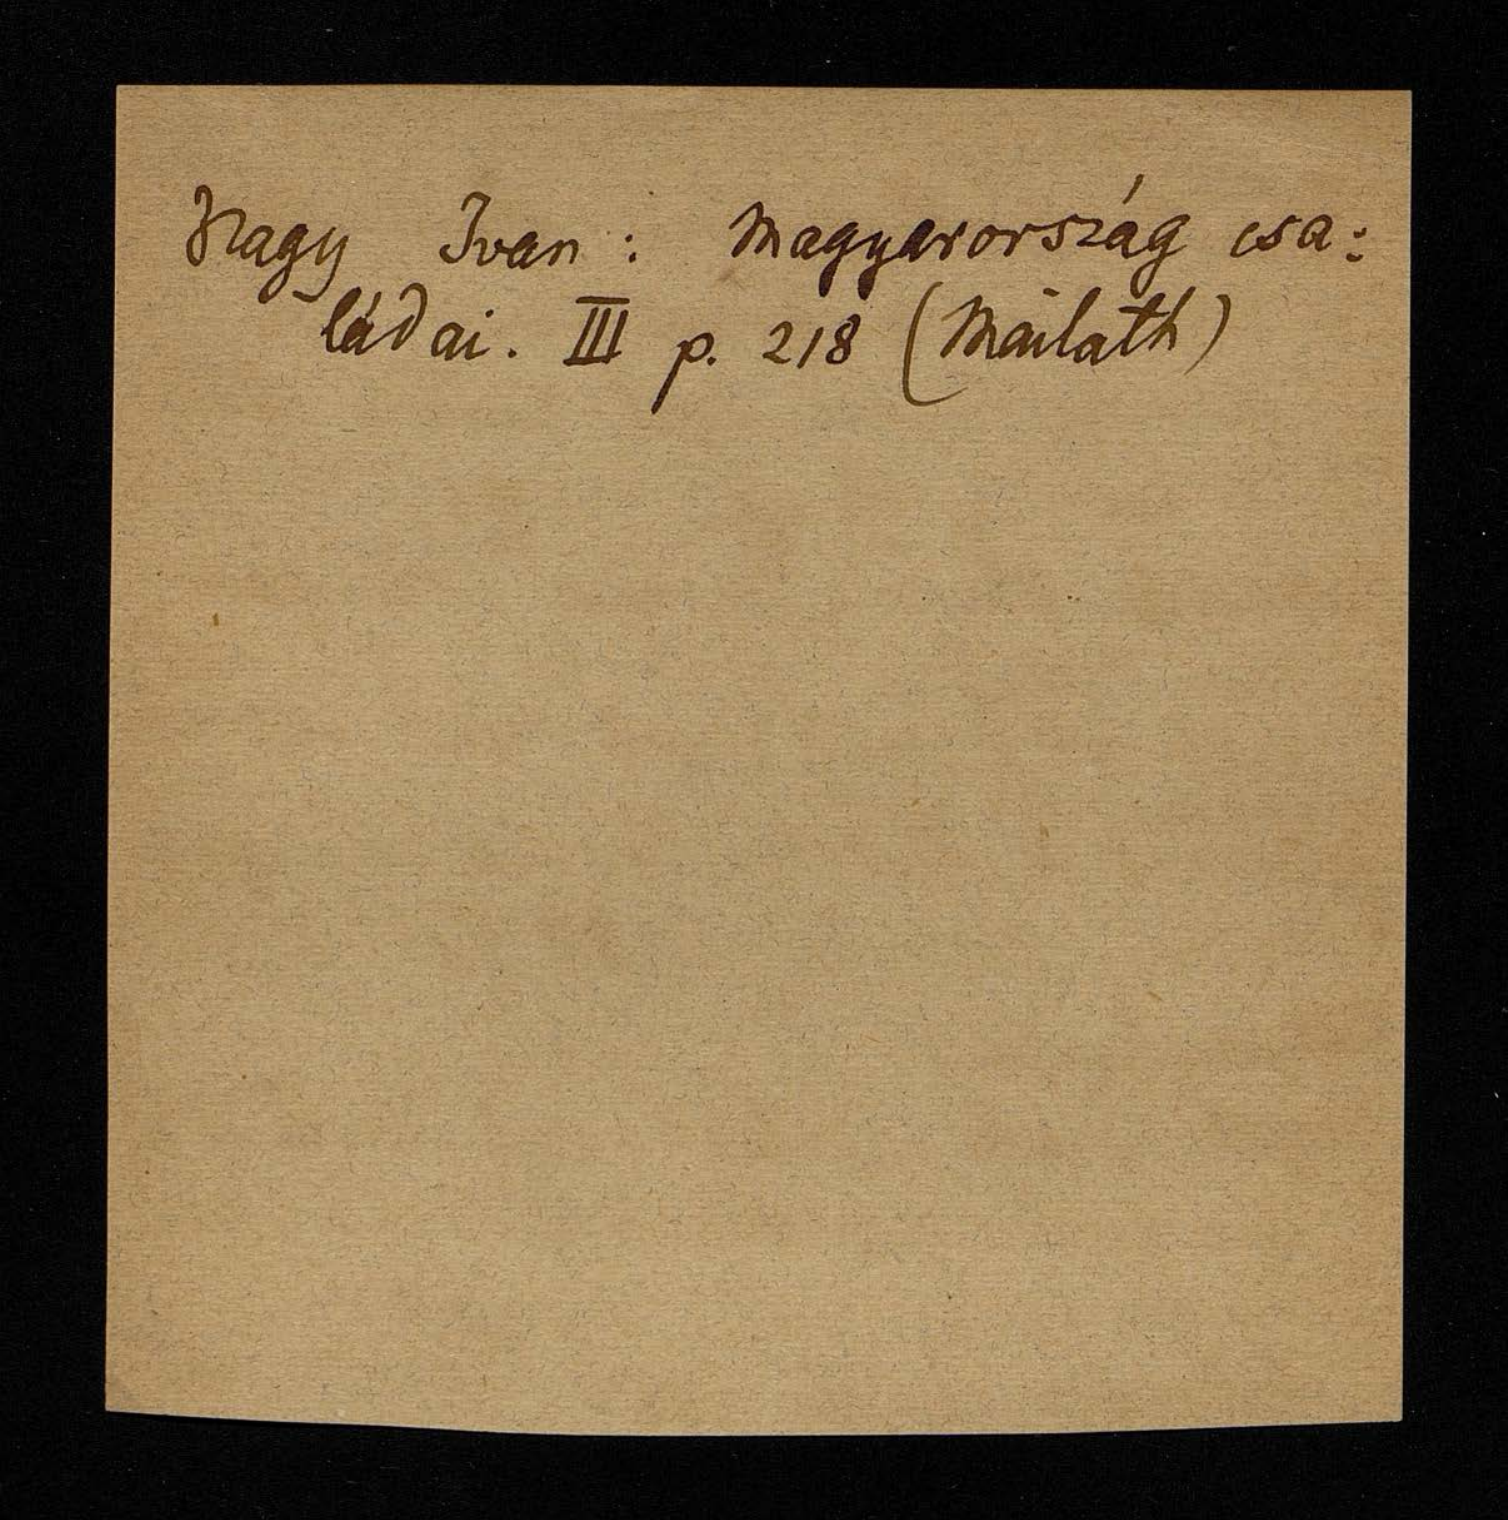 Nagy Ivan : Magyarország csa:
ládai. III p. 218 (Mailath)